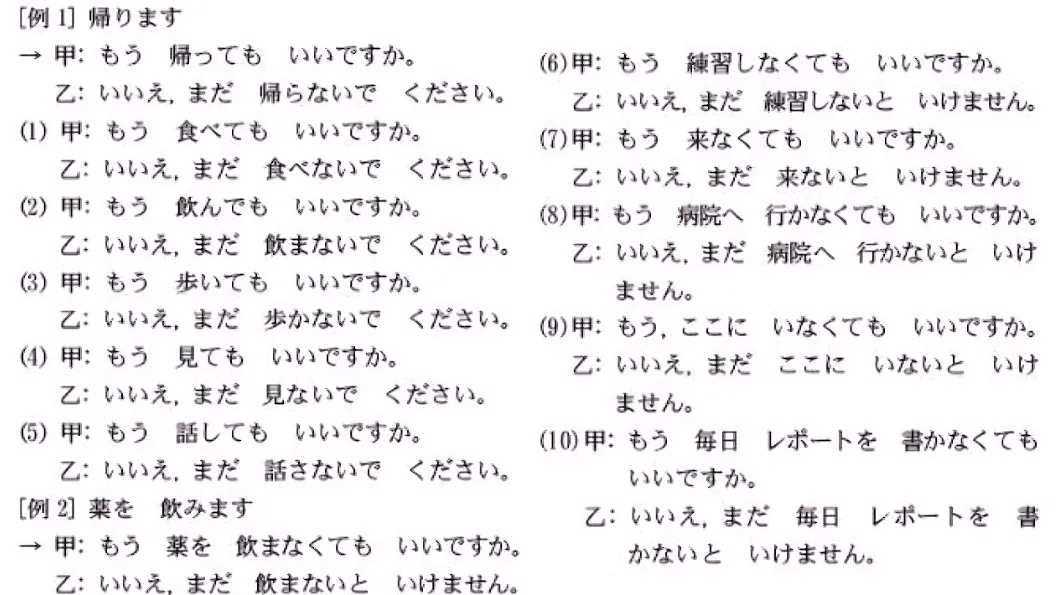 [例1] 帰ります
→ 甲: もう 帰っても いいですか。
乙: いいえ, まだ 帰らないで ください。
(1) 甲: もう 食べても いいですか。
乙: いいえ, まだ 食べないで ください。
(2) 甲: もう 飲んでも いいですか。
乙: いいえ, まだ 飲まないで ください。
(3) 甲: もう 歩いても いいですか。
乙: いいえ, まだ 歩かないで ください。
(4) 甲: もう 見ても いいですか。
乙: いいえ, まだ 見ないで ください。
(5) 甲: もう 話しても いいですか。
乙: いいえ, まだ 話さないで ください。
[例2] 薬を 飲みます
→ 甲: もう 薬を 飲まなくても いいですか。
乙: いいえ, まだ 飲まないと いけません。
(6)甲: もう 練習しなくても いいですか。
乙: いいえ, まだ 練習しないと いけません。
(7)甲: もう 来なくても いいですか。
乙: いいえ, まだ 来ないと いけません。
(8)甲: もう 病院へ 行かなくても いいですか。
乙: いいえ, まだ 病院へ 行かないと いけ
ません。
(9)甲: もう, ここに いなくても いいですか。
乙: いいえ, まだ ここに いないと いけ
ません。
(10)甲: もう 毎日 レポートを 書かなくても
いいですか。
乙: いいえ, まだ 毎日 レポートを 書
かないと いけません。